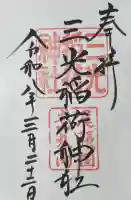 奉拝
三光稲荷神社
令和八年三月二十二日